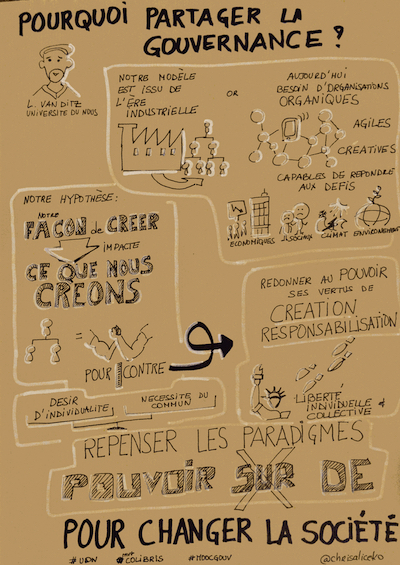 POURQUOI PARTAGER LA
GOUVERNANCE ?
L. VAN DITZ
UNIVERSITE DU NOUS
NOTRE MODÈLE
EST ISSU DE
L'ÈRE
INDUSTRIELLE
OR
AUJOURD'HUI
BESOIN D'ORGANISATIONS
ORGANIQUES
AGILES
CRÉATIVES
CAPABLES DE REPONDRE
AUX DEFIS
ECONOMIQUES
CLIMAT
ENVIRONEMENT
NOTRE HYPOTHÈSE:
NOTRE
FAÇON de CREER
IMPACTE
CE QUE NOUS
CREONS
=
POUR CONTRE
DESIR
D'INDIVIDUALITE
NECESSITE DU
COMMUN
REDONNER AU POUVOIR
SES VERTUS DE
CREATION
RESPONSABILISATION
LIBERTÉ
INDIVIDUELLE &
COLLECTIVE
REPENSER LES PARADIGMES
POUVOIR SUR DE
POUR CHANGER LA SOCIÉTÉ
#UDN
#COLIBRIS
#MOOCGOUV